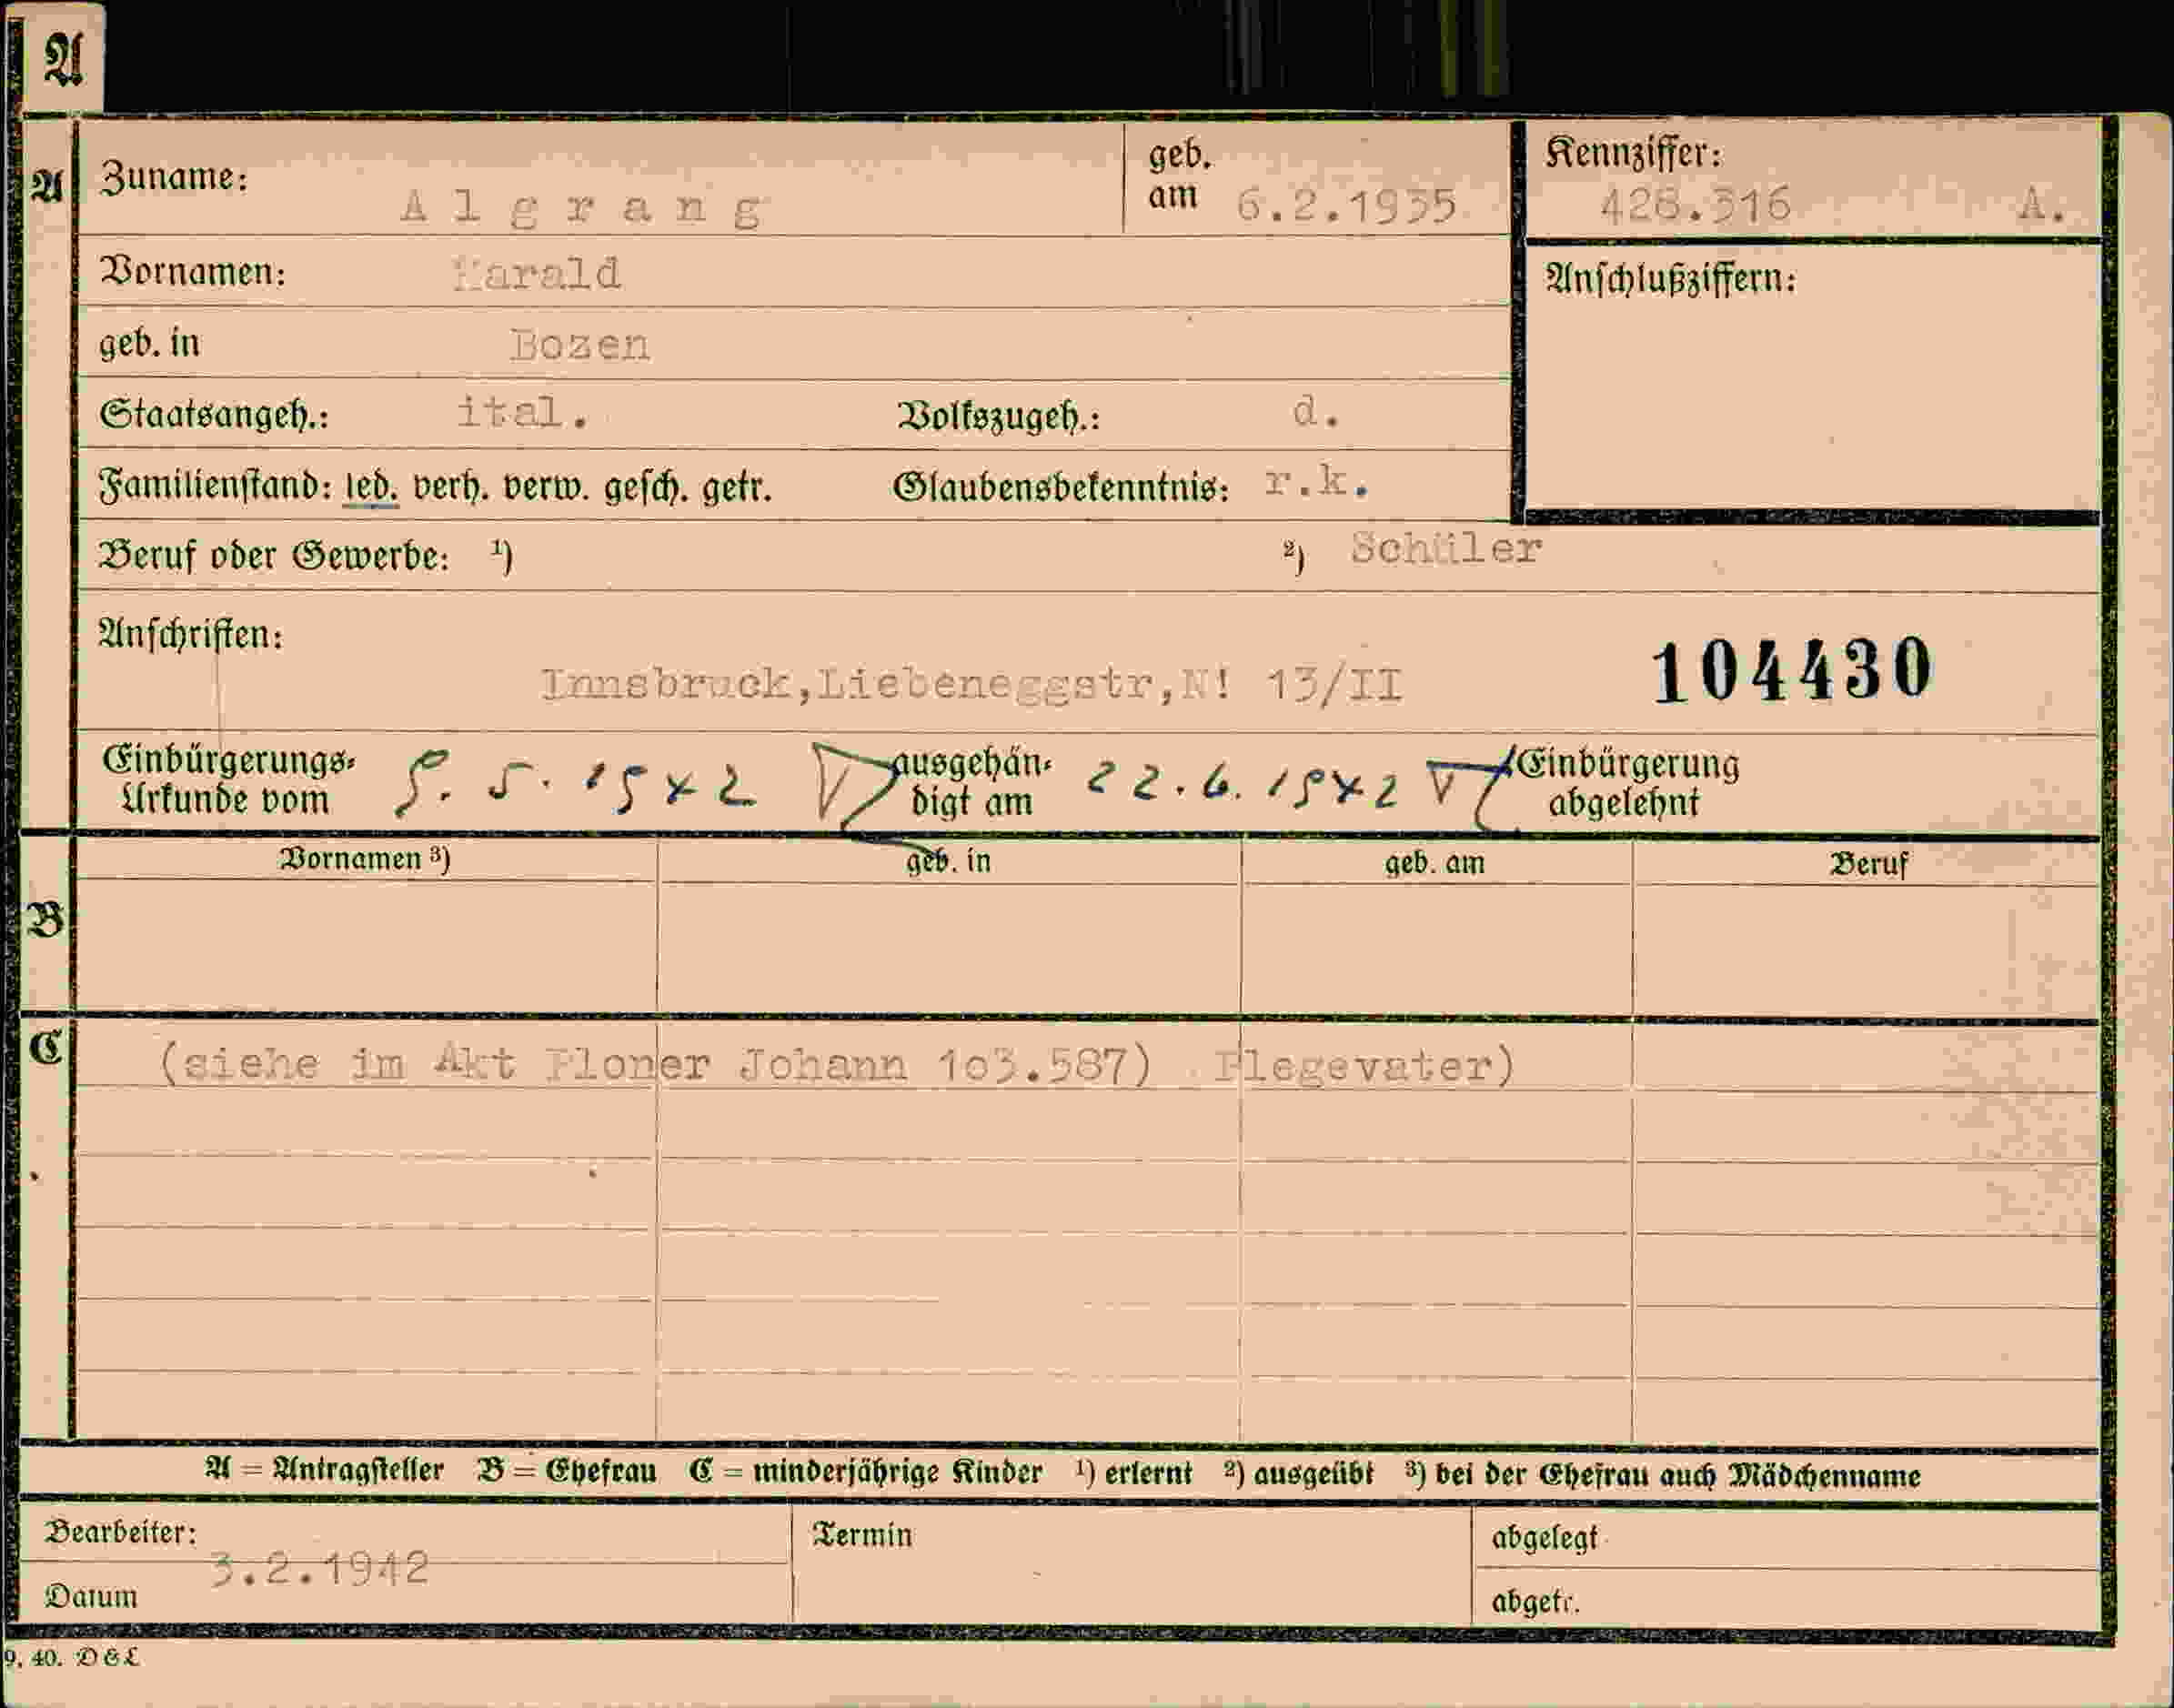 A
A
Zuname: Algrang geb. am 6.2.1935 Kennziffer: 428.316 A.
Vornamen: Harald Anschlußziffern:
geb. in Bozen
Staatsangeh.: ital. Volkszugeh.: d.
Familienstand: led. verh. verw. gesch. getr. Glaubensbekenntnis: r.k.
Beruf oder Gewerbe: ¹) ²) Schüler
Anschriften:
Innsbruck,Liebeneggstr,N! 13/II 104430
Einbürgerungs- Urkunde vom 9. 5. 1942 ausgehän- digt am 22.6.1942 Einbürgerung abgelehnt
Vornamen ³) geb. in geb. am Beruf
B
C (siehe im Akt Ploner Johann 1o3.587) Pflegevater)
A = Antragsteller B = Ehefrau C = minderjährige Kinder ¹) erlernt ²) ausgeübt ³) bei der Ehefrau auch Mädchenname
Bearbeiter: Termin abgelegt
3.2.1942
Datum abgetr.
9. 40. D&L